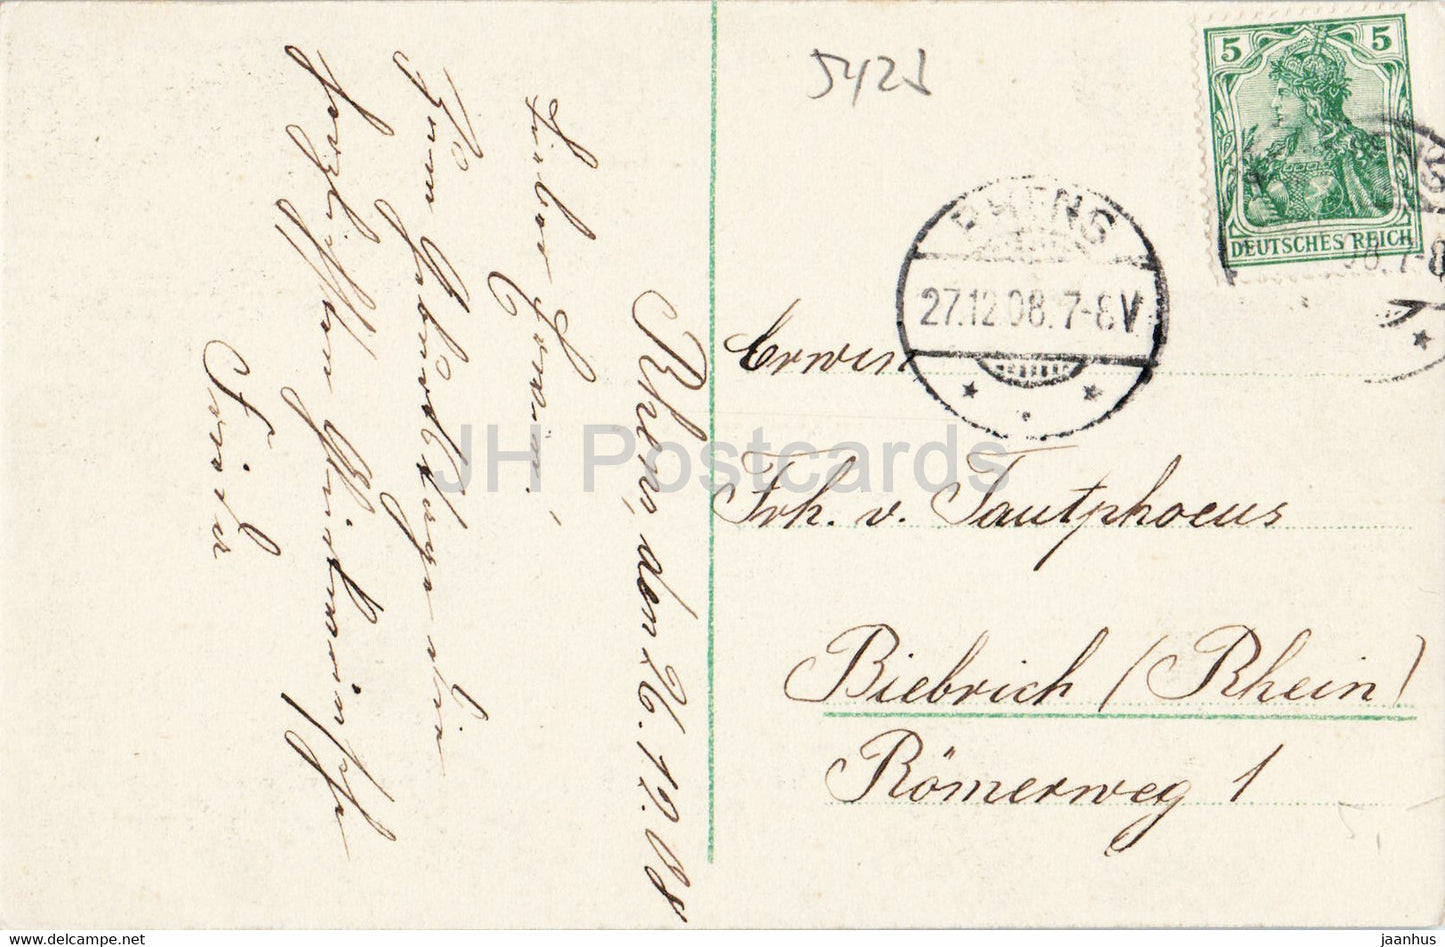 Rhens, den 26.12.08
Lieber Erwin!
Zum Geburtstage die
herzlichsten Glückwünsche
Frieda
5425
5 5
DEUTSCHES REICH
RHENS
27.12.08.7-8V.
08.7-8
Erwin
Frh. v. Tautphoeus
Biebrich (Rhein)
Römerweg 1
JH Postcards
www.delcampe.net
jaanhus